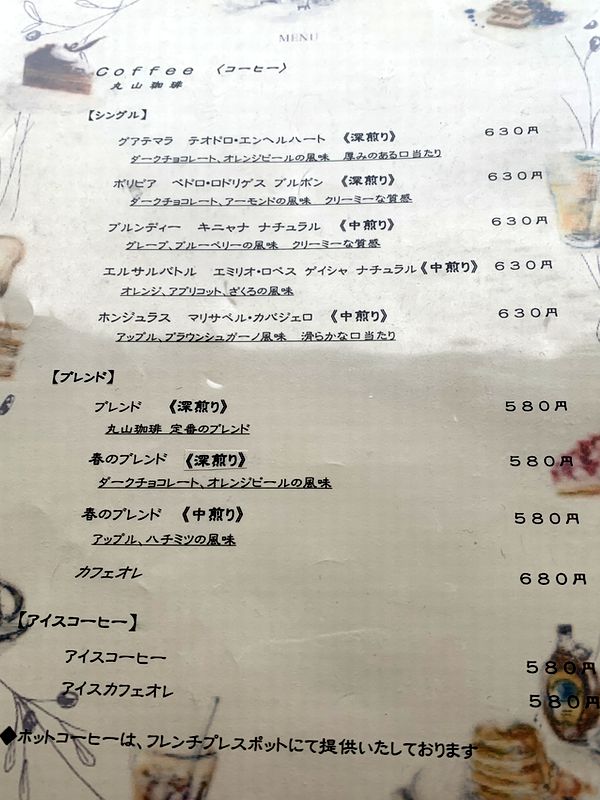 MENU
Coffee 〈コーヒー〉
丸山珈琲
【シングル】
グアテマラ テオドロ・エンヘルハート 《深煎り》 630円
ダークチョコレート、オレンジピールの風味 厚みのある口当たり
ボリビア ペドロ・ロドリゲス ブルボン 《深煎り》 630円
ダークチョコレート、アーモンドの風味 クリーミーな質感
ブルンディー キニャナ ナチュラル 《中煎り》 630円
グレープ、ブルーベリーの風味 クリーミーな質感
エルサルバトル エミリオ・ロペス ゲイシャ ナチュラル《中煎り》 630円
オレンジ、アプリコット、ざくろの風味
ホンジュラス マリサベル・カバジェロ 《中煎り》 630円
アップル、ブラウンシュガーノ風味 滑らかな口当たり
【ブレンド】
ブレンド 《深煎り》 580円
丸山珈琲 定番のブレンド
春のブレンド 《深煎り》 580円
ダークチョコレート、オレンジピールの風味
春のブレンド 《中煎り》 580円
アップル、ハチミツの風味
カフェオレ 680円
【アイスコーヒー】
アイスコーヒー 580円
アイスカフェオレ 580円
◆ホットコーヒーは、フレンチプレスポットにて提供いたしております